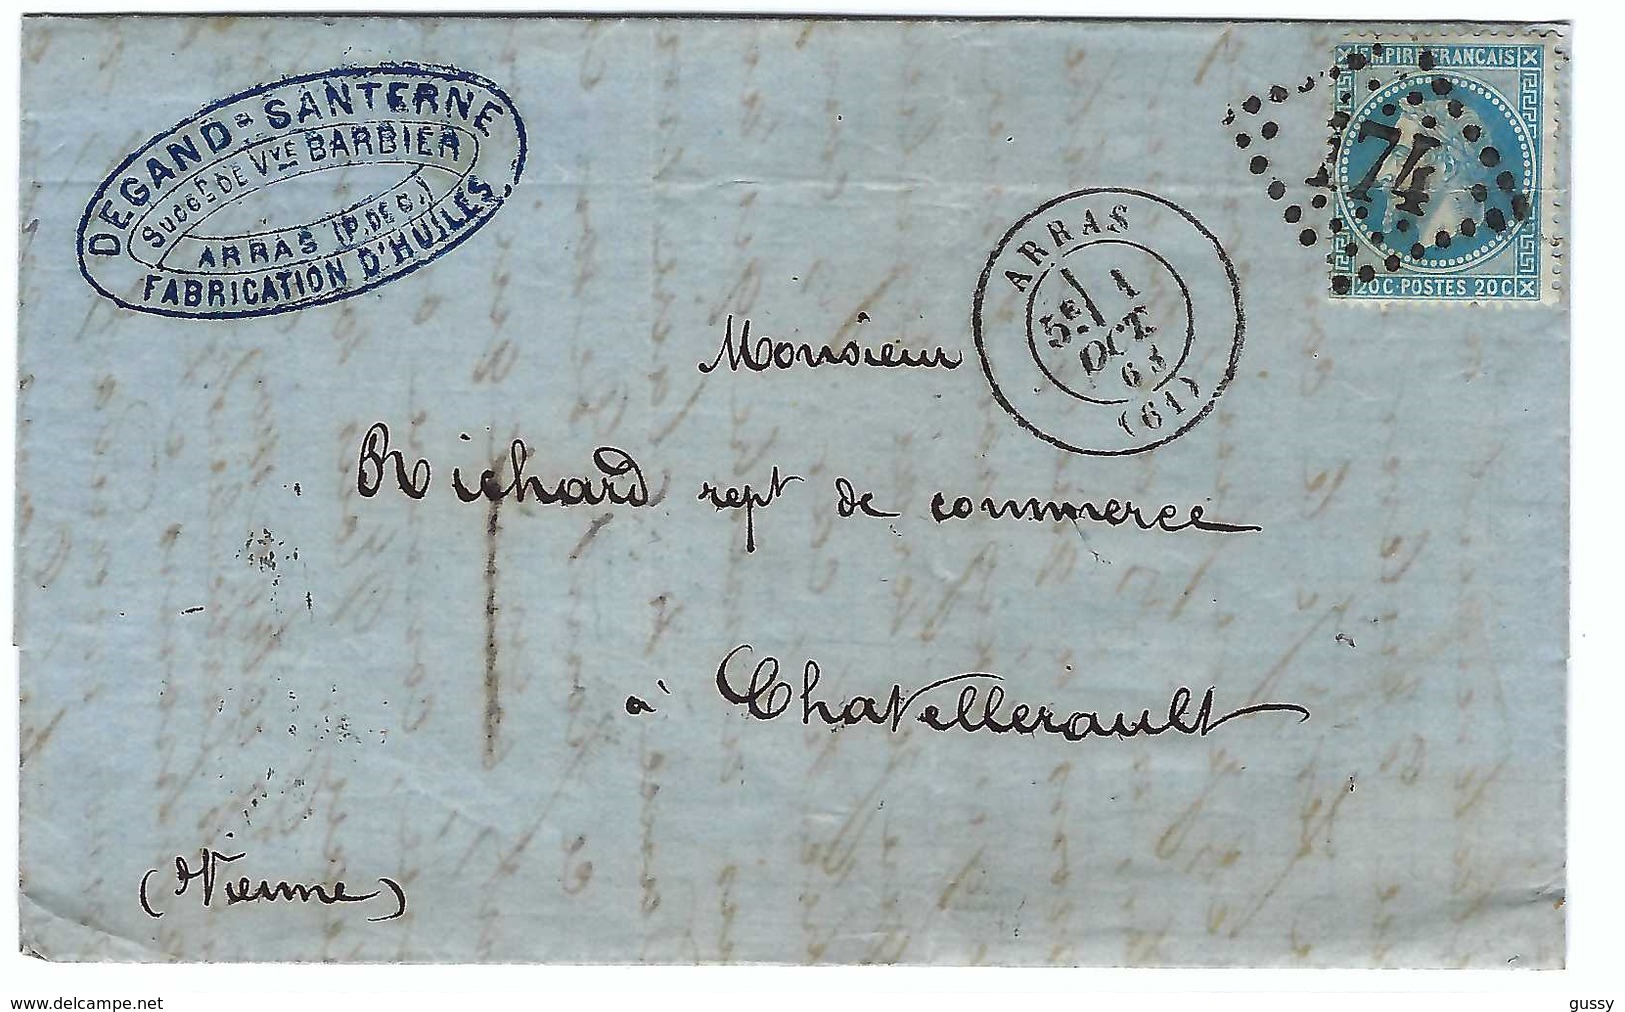 DEGAND-SANTERNE
Succr DE Vve BARBIER
ARRAS (P. DE C.)
FABRICATION D'HUILES.
EMPIRE FRANCAIS
20 C · POSTES 20 C
174
ARRAS
5E 1
OCT.
63
(61)
Monsieur
Richard rept de commerce
à Chatellerault
(Vienne)
www.delcampe.net
gussy